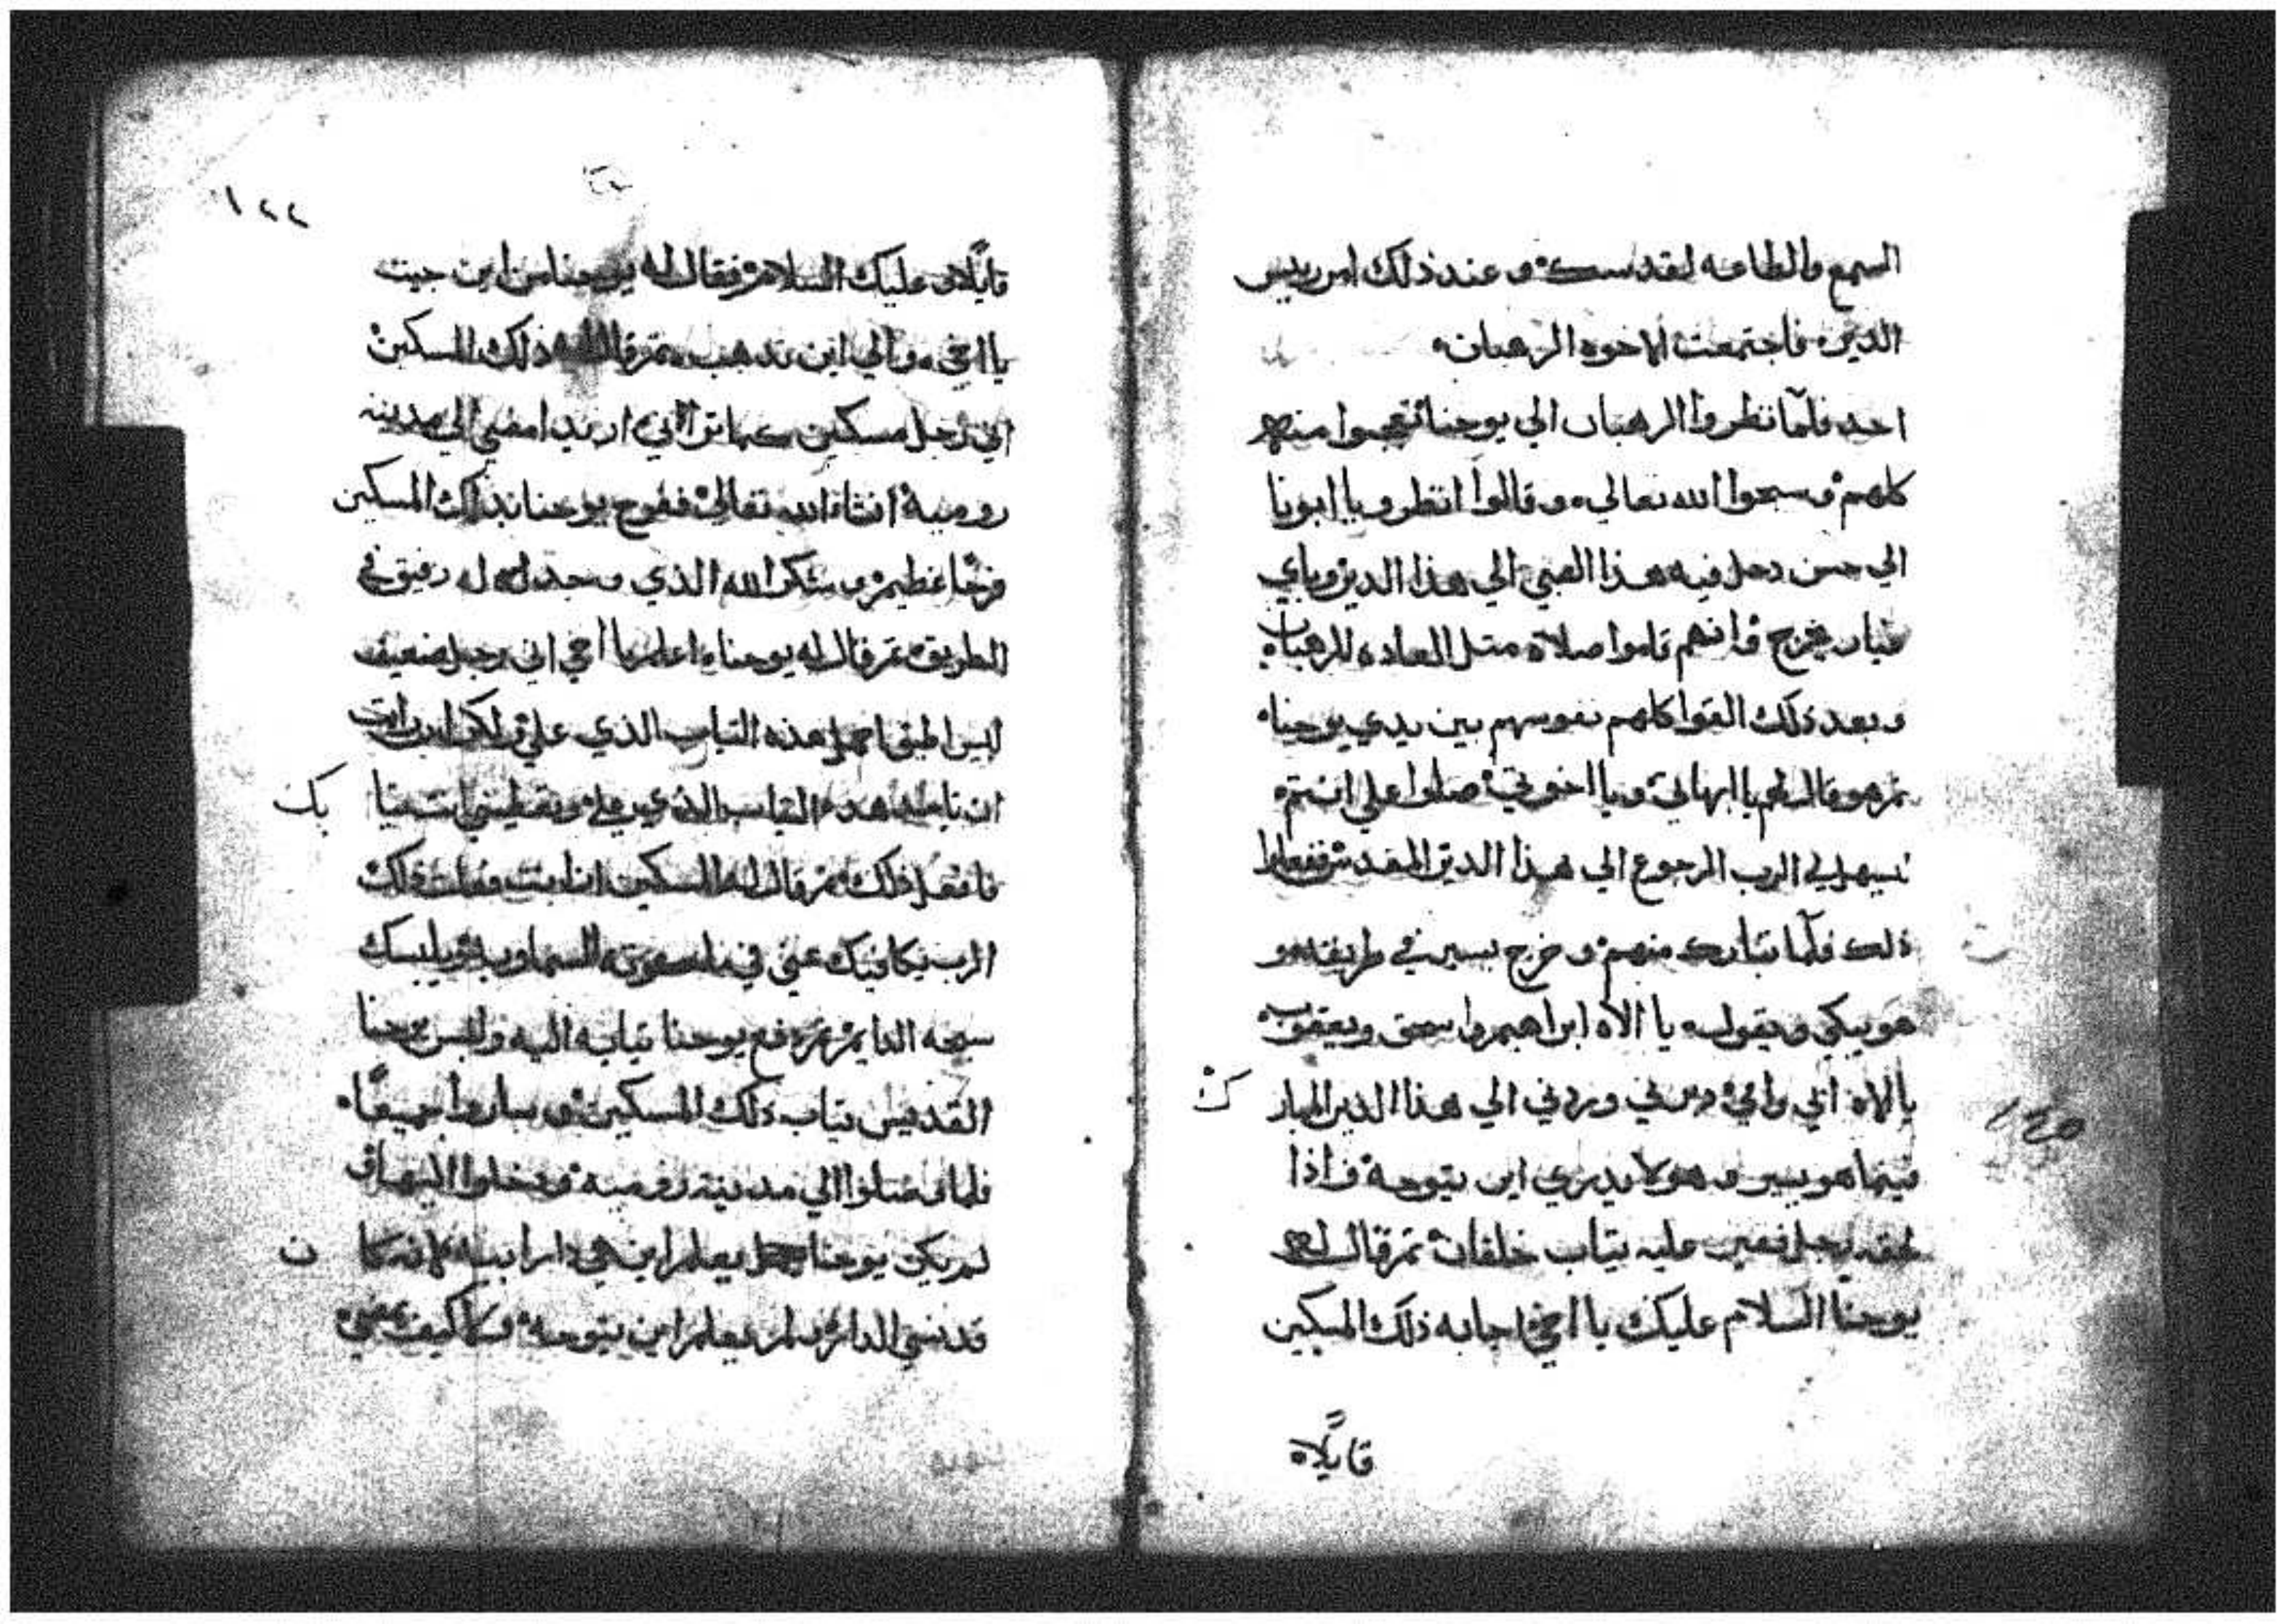 السمع والطاعه لقدسك وعند ذلك امر ريس
الدير فاجتمعت الاخوه الرهبان
احد فلما نظروا الرهبان الي يوحنا تعجبوا منهم
كلهم وسبحوا الله تعالي وقالوا انظروا يا ابونا
الي حسن دخل فيه هذا الصبي الي هذا الدير وباي
خيار يخرج وانهم قاموا صلاة متل العاده للرهبان
وبعد ذلك القوا كلهم نفوسهم بين يدي يوحنا
تم هو قال لهم يا ابهاتي ويا اخوتي صلوا علي انتم
يسهل لي الرب الرجوع الي هذا الدير المقدس ففعلوا
ذلك فلما تبارك منهم وخرج يسير في طريقه و
هو يبكي ويقول يا الاه ابراهيم واسحق ويعقوب
يا الاه ابي وامي دبرني وردني الي هذا الدير المبار ك
فبينما هو يسير وهو لا يدري اين يتوجه واذا
لحقه رجل فقير عليه تياب خلقات تم قال له
يوحنا السلام عليك يا اخي اجابه ذلك المسكين
قايلا
١٢٢
قايلا وعليك السلام فقال له يوحنا من اين جيت
يا اخي والي اين تدهب تم قال له ذلك المسكين
اني رجل مسكين كما تراني اريد امضي الي مدينه
رومية انشاء الله تعالي ففرح يوحنا بذلك المسكين
فرحا عظيم وشكر الله الذي وجد له رفيق في
الطريق تم قال له يوحنا اعلم يا اخي اني رجل ضعيف
ليس اطيق احمل هذه التياب الذي علي ولكن ان رايت
ان تاخد هده التياب الذي علي وتعطيني انت تيا بك
فافعل ذلك تم قال له المسكين ان انت فعلت ذلك
الرب يكافيك عني في ملكوته السماويه ويلبسك
سبحه الدايم تم دفع يوحنا تيابه اليه ولبس يوحنا
القديس تياب ذلك المسكين وساروا جميعا
فلما وصلوا الي مدينة رومية ودخلوا اليها
لم يكن يوحنا يعلم اين هي دار ابيه لانه كا ن
قد نسي الدار ولم يعلم اين يتوجه ولا كيف يمضي